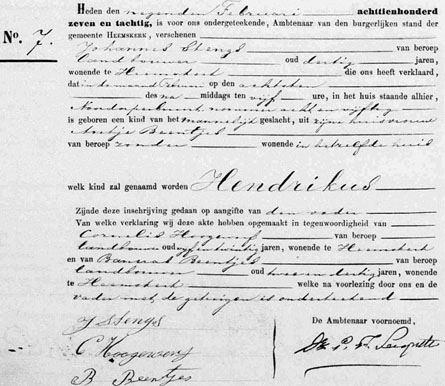 Heden den negenden Februari achttienhonderd
zeven en tachtig, is voor ons ondergeteekende, Ambtenaar van den burgerlijken stand der
No. 7. gemeente HEEMSKERK, verschenen
Johannes Stengs van beroep
landbouwer oud dertig jaren,
wonende te Heemskerk die ons heeft verklaard,
dat in de maand Februari op den achtsten
des na middags ten vijf ure, in het huis staande alhier,
Noorderbuurt, nommer acht en vijftig
is geboren een kind van het mannelijk geslacht, uit zijne huisvrouw
Antje Beentjes
van beroep zonder wonende in hetzelfde huis
welk kind zal genaamd worden Hendrikus
Zijnde deze inschrijving gedaan op aangifte van den vader
Van welke verklaring wij deze akte hebben opgemaakt in tegenwoordigheid van
Cornelis Hoogewerf van beroep
landbouwer oud vijf en twintig jaren, wonende te Heemskerk
en van Beentjes van beroep
landbouwer oud twee en dertig jaren, wonende
te Heemskerk welke na voorlezing door ons en de
vader met de getuigen is onderteekend
De Ambtenaar voornoemd,
J Stengs
C Hoogewerf
B Beentjes